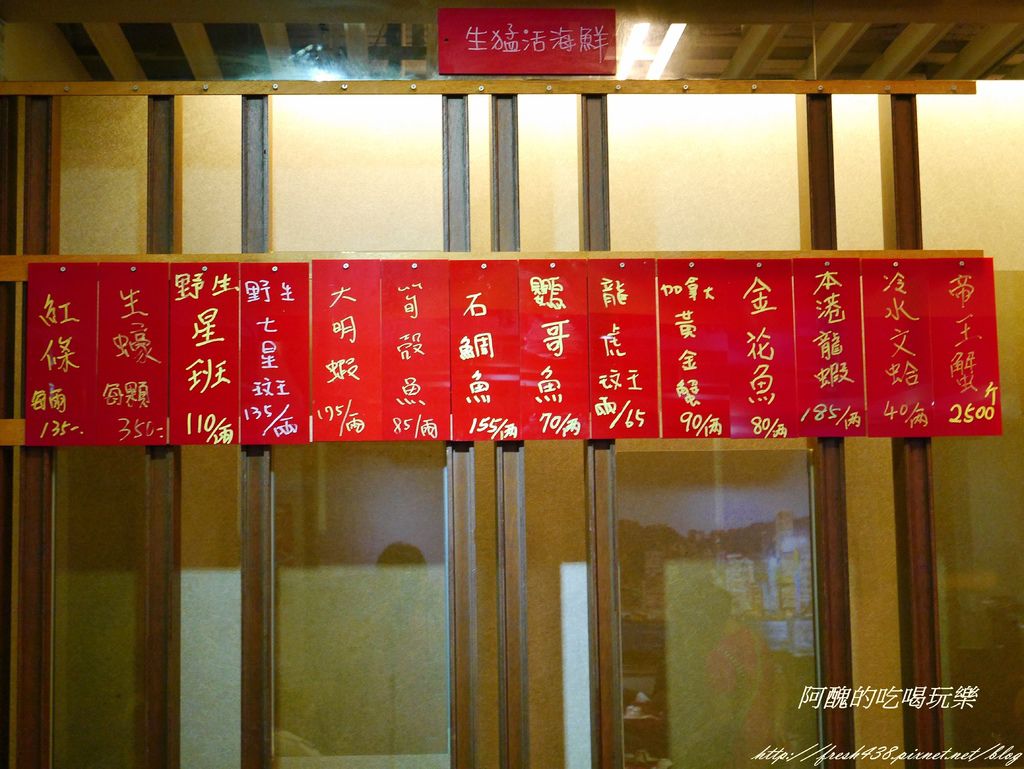 生猛活海鮮
紅條 每兩 135-.
生蠔 每顆 350-
野生星班 110/兩
野生七星玟王 135/兩
大明蝦 195/兩
筍殼魚 85/兩
石鯛魚 155/兩
鸚哥魚 70/兩
龍虎玟王 兩/65
加拿大黃金蟹 90/兩
金花魚 80/兩
本港龍蝦 185/兩
冷水文蛤 40/兩
帝王蟹 斤 2500
阿醜的吃喝玩樂
http://fresh438.pixnet.net/blog